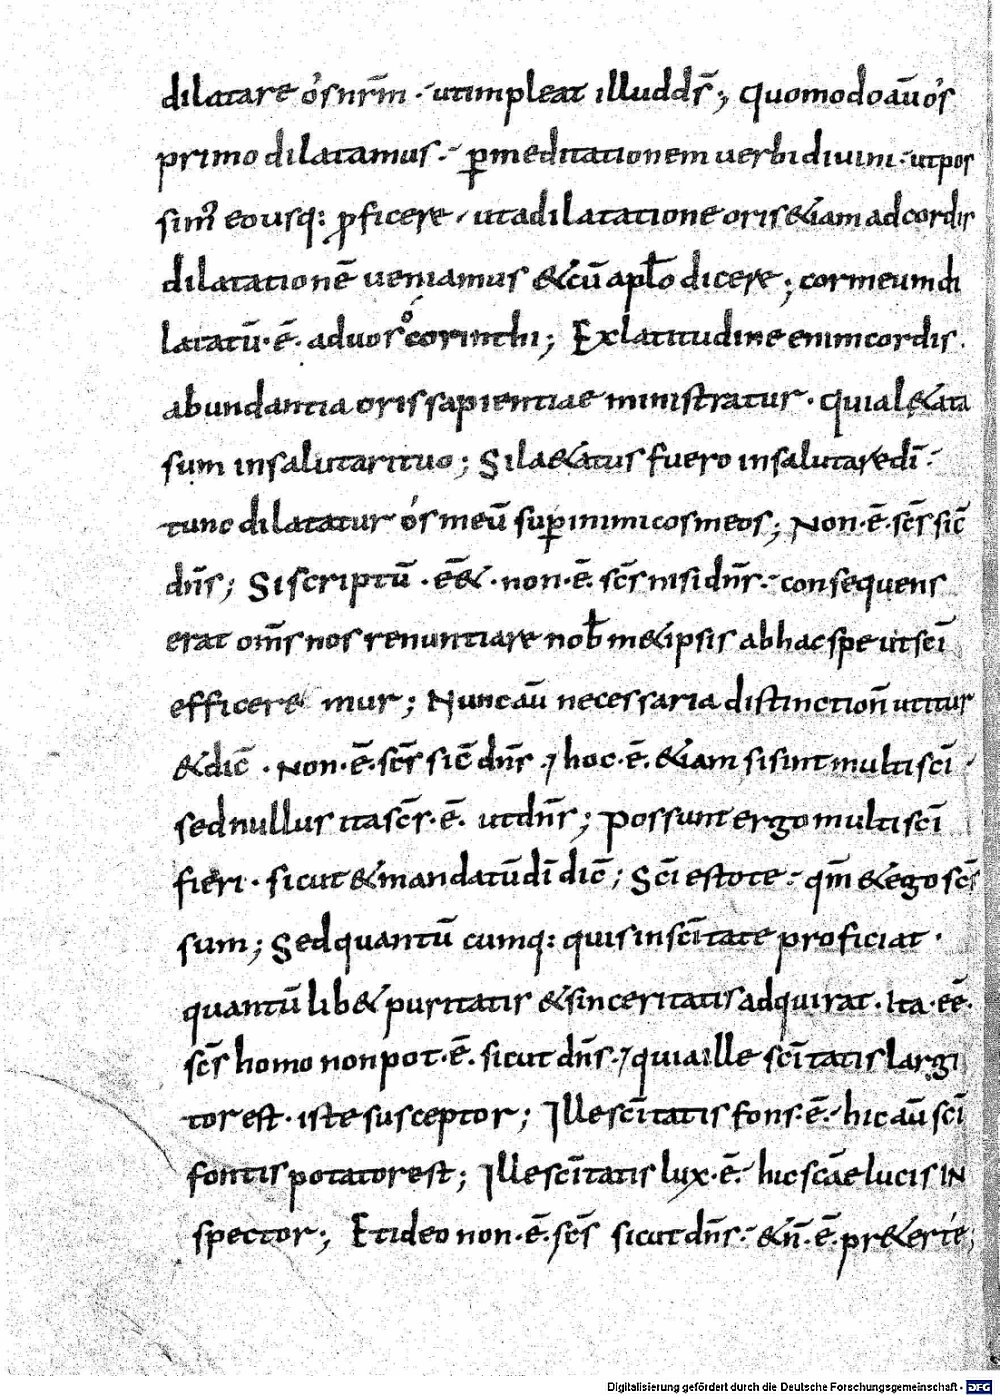 dilatare ós nr̄m · ut impleat illud ds̄; Quomodo aū ós
primo dilatamus · ꝑ meditationem uerbi diuini · ut pos
sim᾽ eo usq: ꝓficere · ut a dilatatione oris &iam ad cordis
dilationē ueniamus & cū apło dicere; cor meum di
latatū · ē · ad uos ó corinthi; Ex latitudine enim cordis ·
abundantia oris sapientiae ministratur · Quia l&ata
sum in salutari tuo; Si la&atus fuero in salutare dī ·
tunc dilatatur ós meū suꝑ inimicos meos; Non · ē · scs̄ sic̄
dn̄s; Si scriptū · eē& · non · ē · scs̄ nisi dn̄s · consequens
erat om̄s nos renuntiare nob̄ m&ipsis ab hac spe ut scī
efficere mur; Nunc aū necessaria distinction̄ utitur
& dic̄ · Non · ē · scs̄ sic̄ dn̄s · hoc · ē · &iam si sint multi scī ·
sed nullus ita scs̄ · ē · ut dn̄s; Possunt ergo multi scī
fieri · sicut & mandatū dī dic̄; Scī estote · qm̄ & ego scs̄
sum; Sed quantū cumq: quis in scītate proficiat ·
quantū lib& puritatis & sinceritatis adquirat · Ita · eē ·
scs̄ homo non pot · ē · sicut dn̄s · quia ille scītatis largi
tor est · iste susceptor; Ille scītatis fons · ē · hic aū scī
fontis potator est; Ille scītatis lux · ē · hic scāe lucis IN
spector; Et ideo non · ē · scs̄ sicut dn̄s · & n̄ · ē · pr&er te;
Digitalisierung gefördert durch die Deutsche Forschungsgemeinschaft - DFG